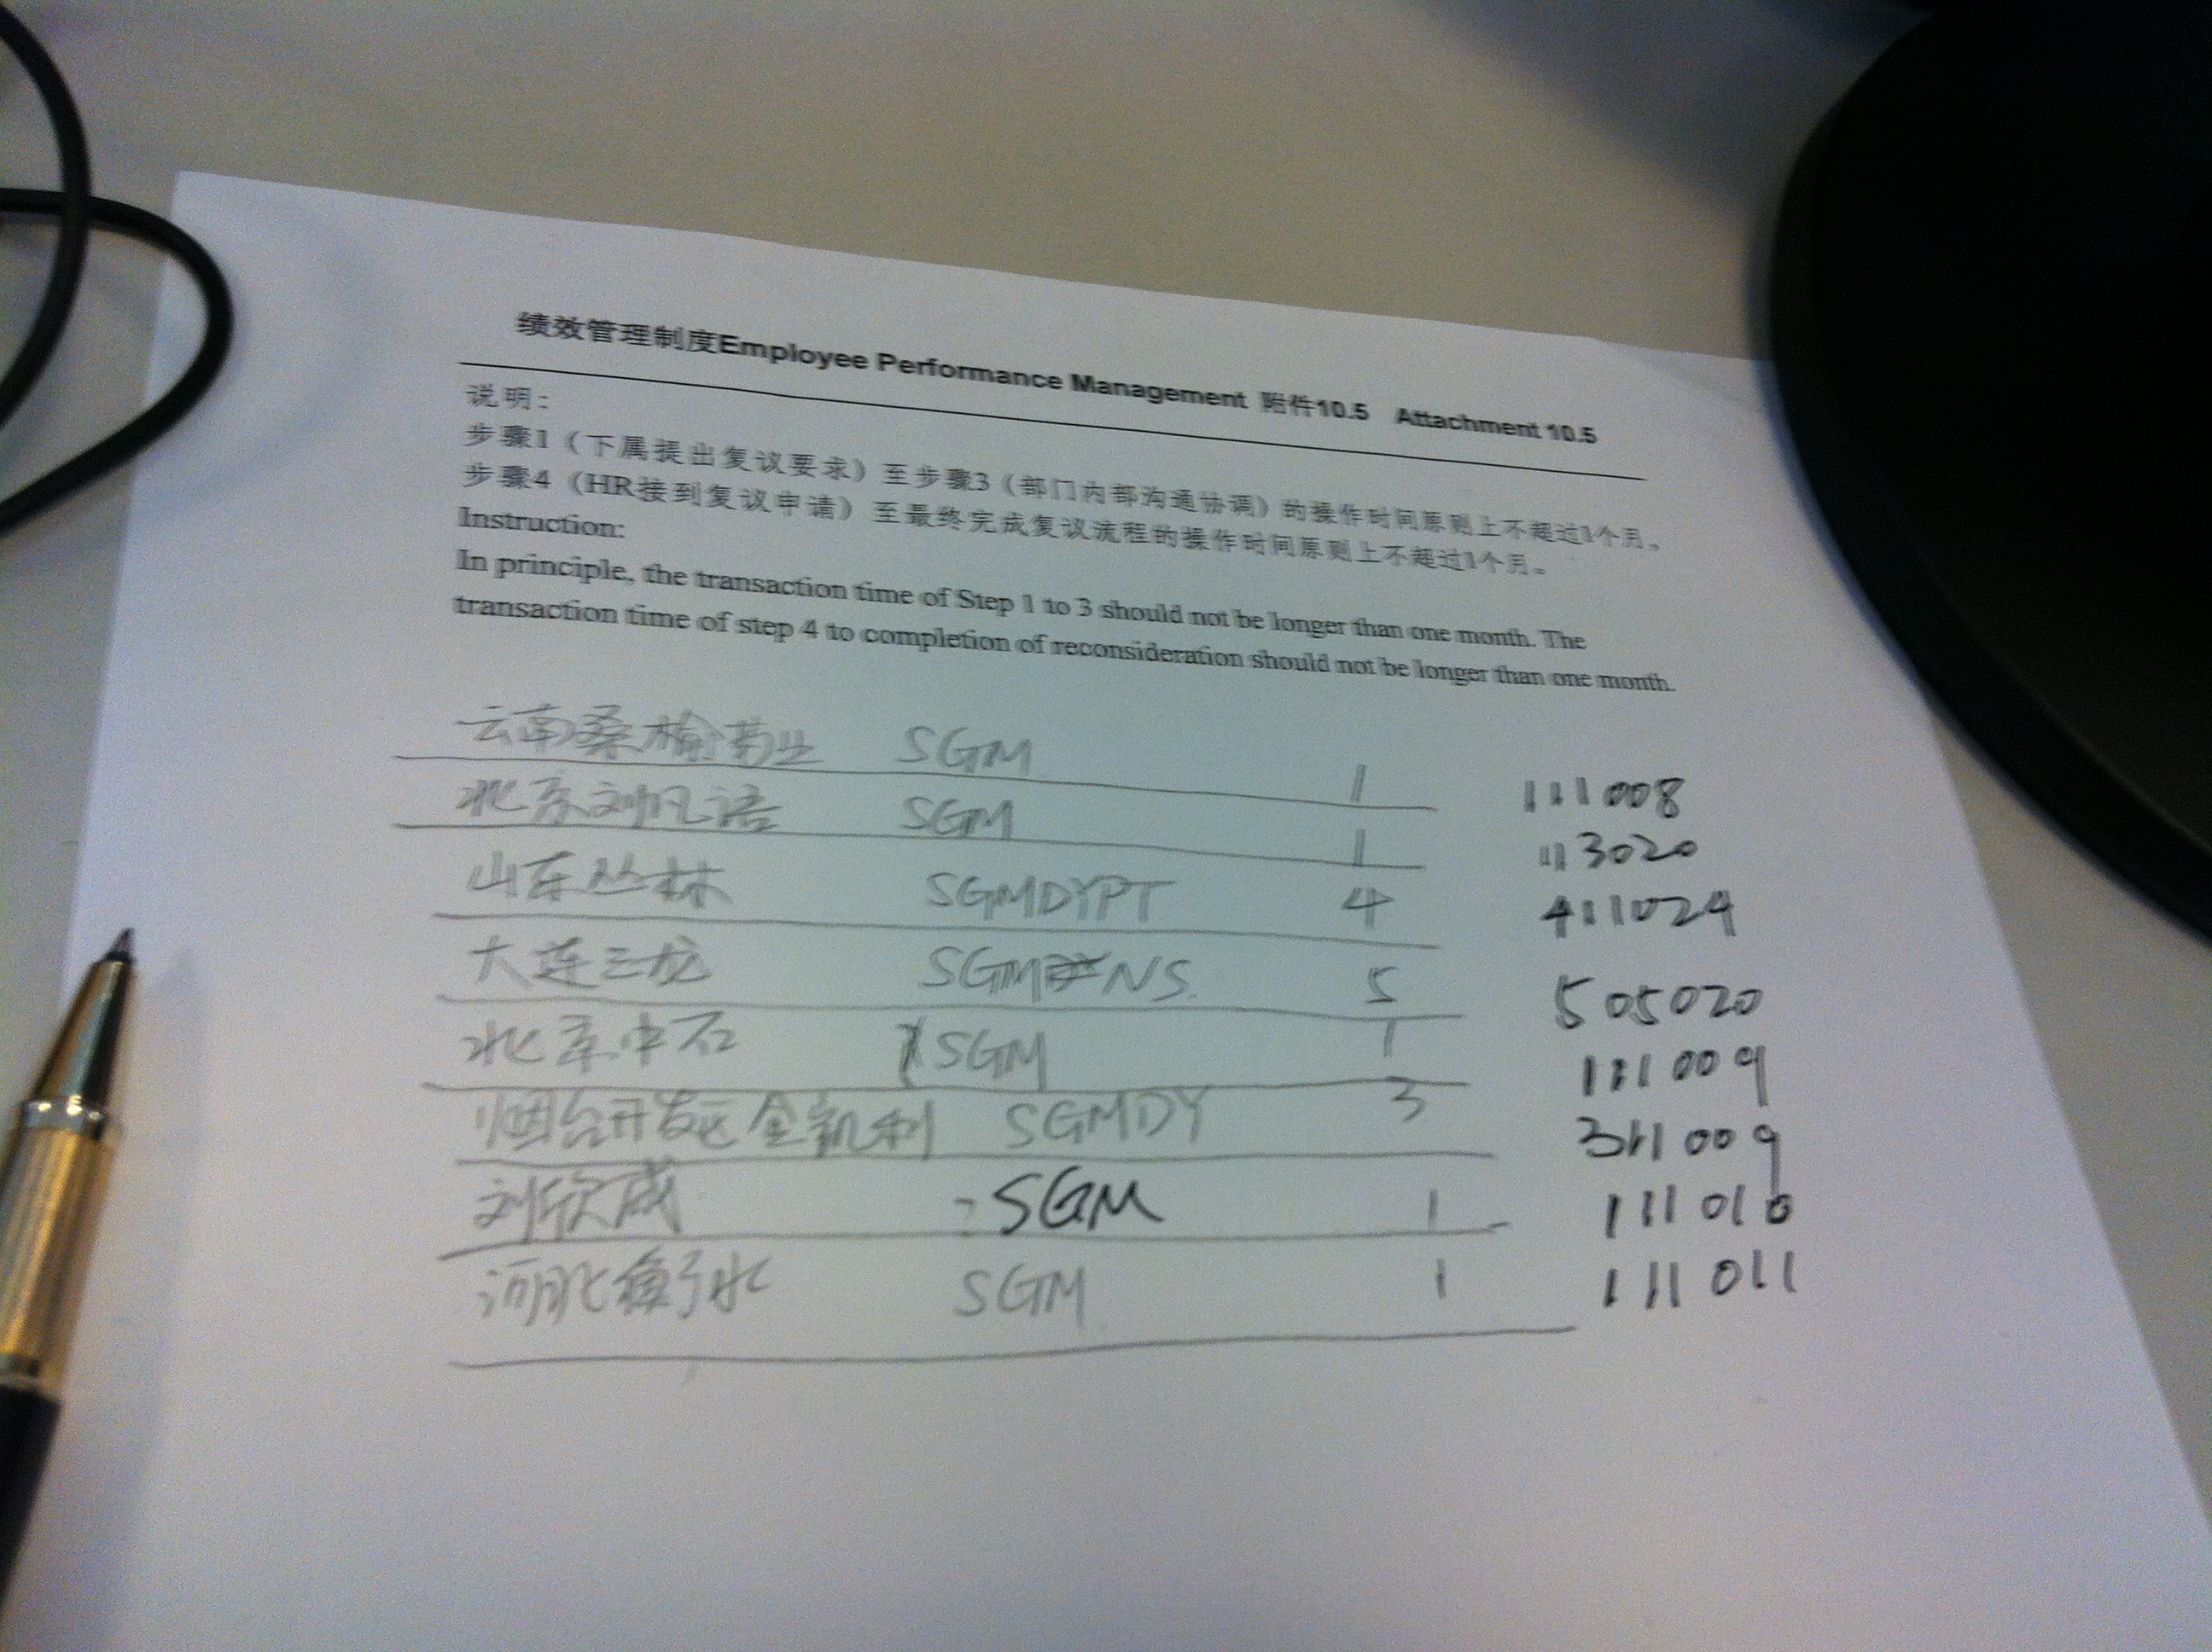 绩效管理制度Employee Performance Management 附件10.5 Attachment 10.5
说明：
步骤1（下属提出复议要求）至步骤3（部门内部沟通协调）的操作时间原则上不超过1个月。
步骤4（HR接到复议申请）至最终完成复议流程的操作时间原则上不超过1个月。
Instruction:
In principle, the transaction time of Step 1 to 3 should not be longer than one month. The
transaction time of step 4 to completion of reconsideration should not be longer than one month.
云南 药业 SGM 1 111008
北京 SGM 1 113020
山东 SGMDYPT 4 411024
大连三龙 SGM NS 5 505020
北京中石 SGM 1 111009
烟台开发区金 SGMDY 3 311009
SGM 1 111010
SGM 1 111011